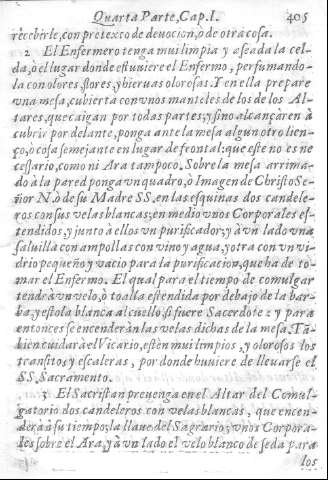 Quarta Parte, Cap. I. 405
recebirle, con pretexto de deuocion, ò de otra cosa.
2 El Enfermero tenga mui limpia y aseada la cel-
da, ò el lugar donde estuuiere el Enfermo, perfumando-
la con olores, flores, y hieruas olorosas. Y en ella prepare
vna mesa, cubierta con vnos manteles de los de los Al-
tares, que caigan por todas partes; y si no alcançàren à
cubrir por delante, ponga ante la mesa algun otro lien-
ço, ò cosa semejante en lugar de frontal: que este no es ne
cessario, como ni Ara tampoco. Sobre la mesa arrima-
do à la pared ponga vn quadro, ò Imagen de Christo Se-
ñor N. ò de su Madre SS. en las esquinas dos candele-
ros con sus velas blancas; en medio vnos Corporales es-
tendidos, y junto à ellos vn purificador; y à vn lado vna
saluilla con ampollas con vino y agua, y otra con vn vi-
drio pequeño y vacio para la purificacion, que ha de to-
mar el Enfermo. El qual para el tiempo de comulgar
tendrà vn velo, ò toalla estendida por debajo de la bar-
ba, y estola blanca al cuello, si fuere Sacerdote: y para
entonces se encenderàn las velas dichas de la mesa. Tã-
bien cuidarà el Vicario, estèn mui limpios, y olorosos los
transitos, y escaleras, por donde huuiere de lleuarse el
SS. Sacramento.
3 El Sacristan preuenga en el Altar del Comul-
gatorio dos candeleros con velas blancas, que encen-
derà à su tiempo; la llaue del Sagrario; vnos Corpora-
les sobre el Ara, y à vn lado el velo blanco de seda para
los